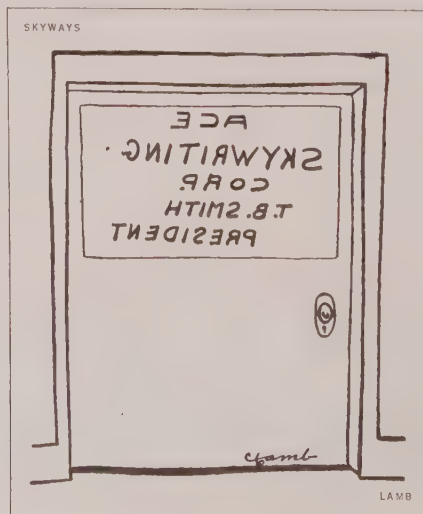 SKYWAYS
ACE
SKYWRITING
CORP.
T.B. SMITH
PRESIDENT
Lamb
LAMB